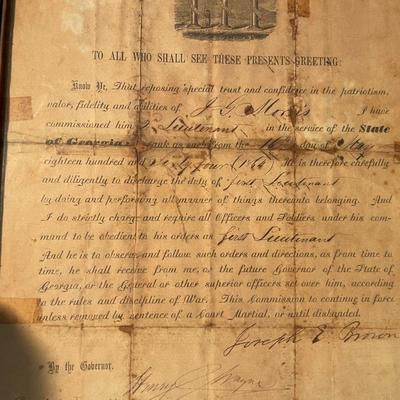 TO ALL WHO SHALL SEE THESE PRESENTS GREETING:
Know Ye, That reposing special trust and confidence in the patriotism,
valor, fidelity and abilities of J G Morris I have
commissioned him Lieutenant in the service of the State
of Georgia: to rank as such from the day of May
eighteen hundred and sixty four (1864) He is therefore carefully
and diligently to discharge the duty of first Lieutenant
by doing and performing all manner of things thereunto belonging. And
I do strictly charge and require all Officers and Soldiers under his com-
mand to be obedient to his orders as first Lieutenant
And he is to observe and follow such orders and directions, as from time to
time, he shall receive from me, or the future Governor of the State of
Georgia, or the General or other superior officers set over him, according
to the rules and discipline of War. This Commission to continue in force
unless removed by sentence of a Court Martial, or until disbanded.
Joseph E Brown
By the Governor.
Henry C Wayne